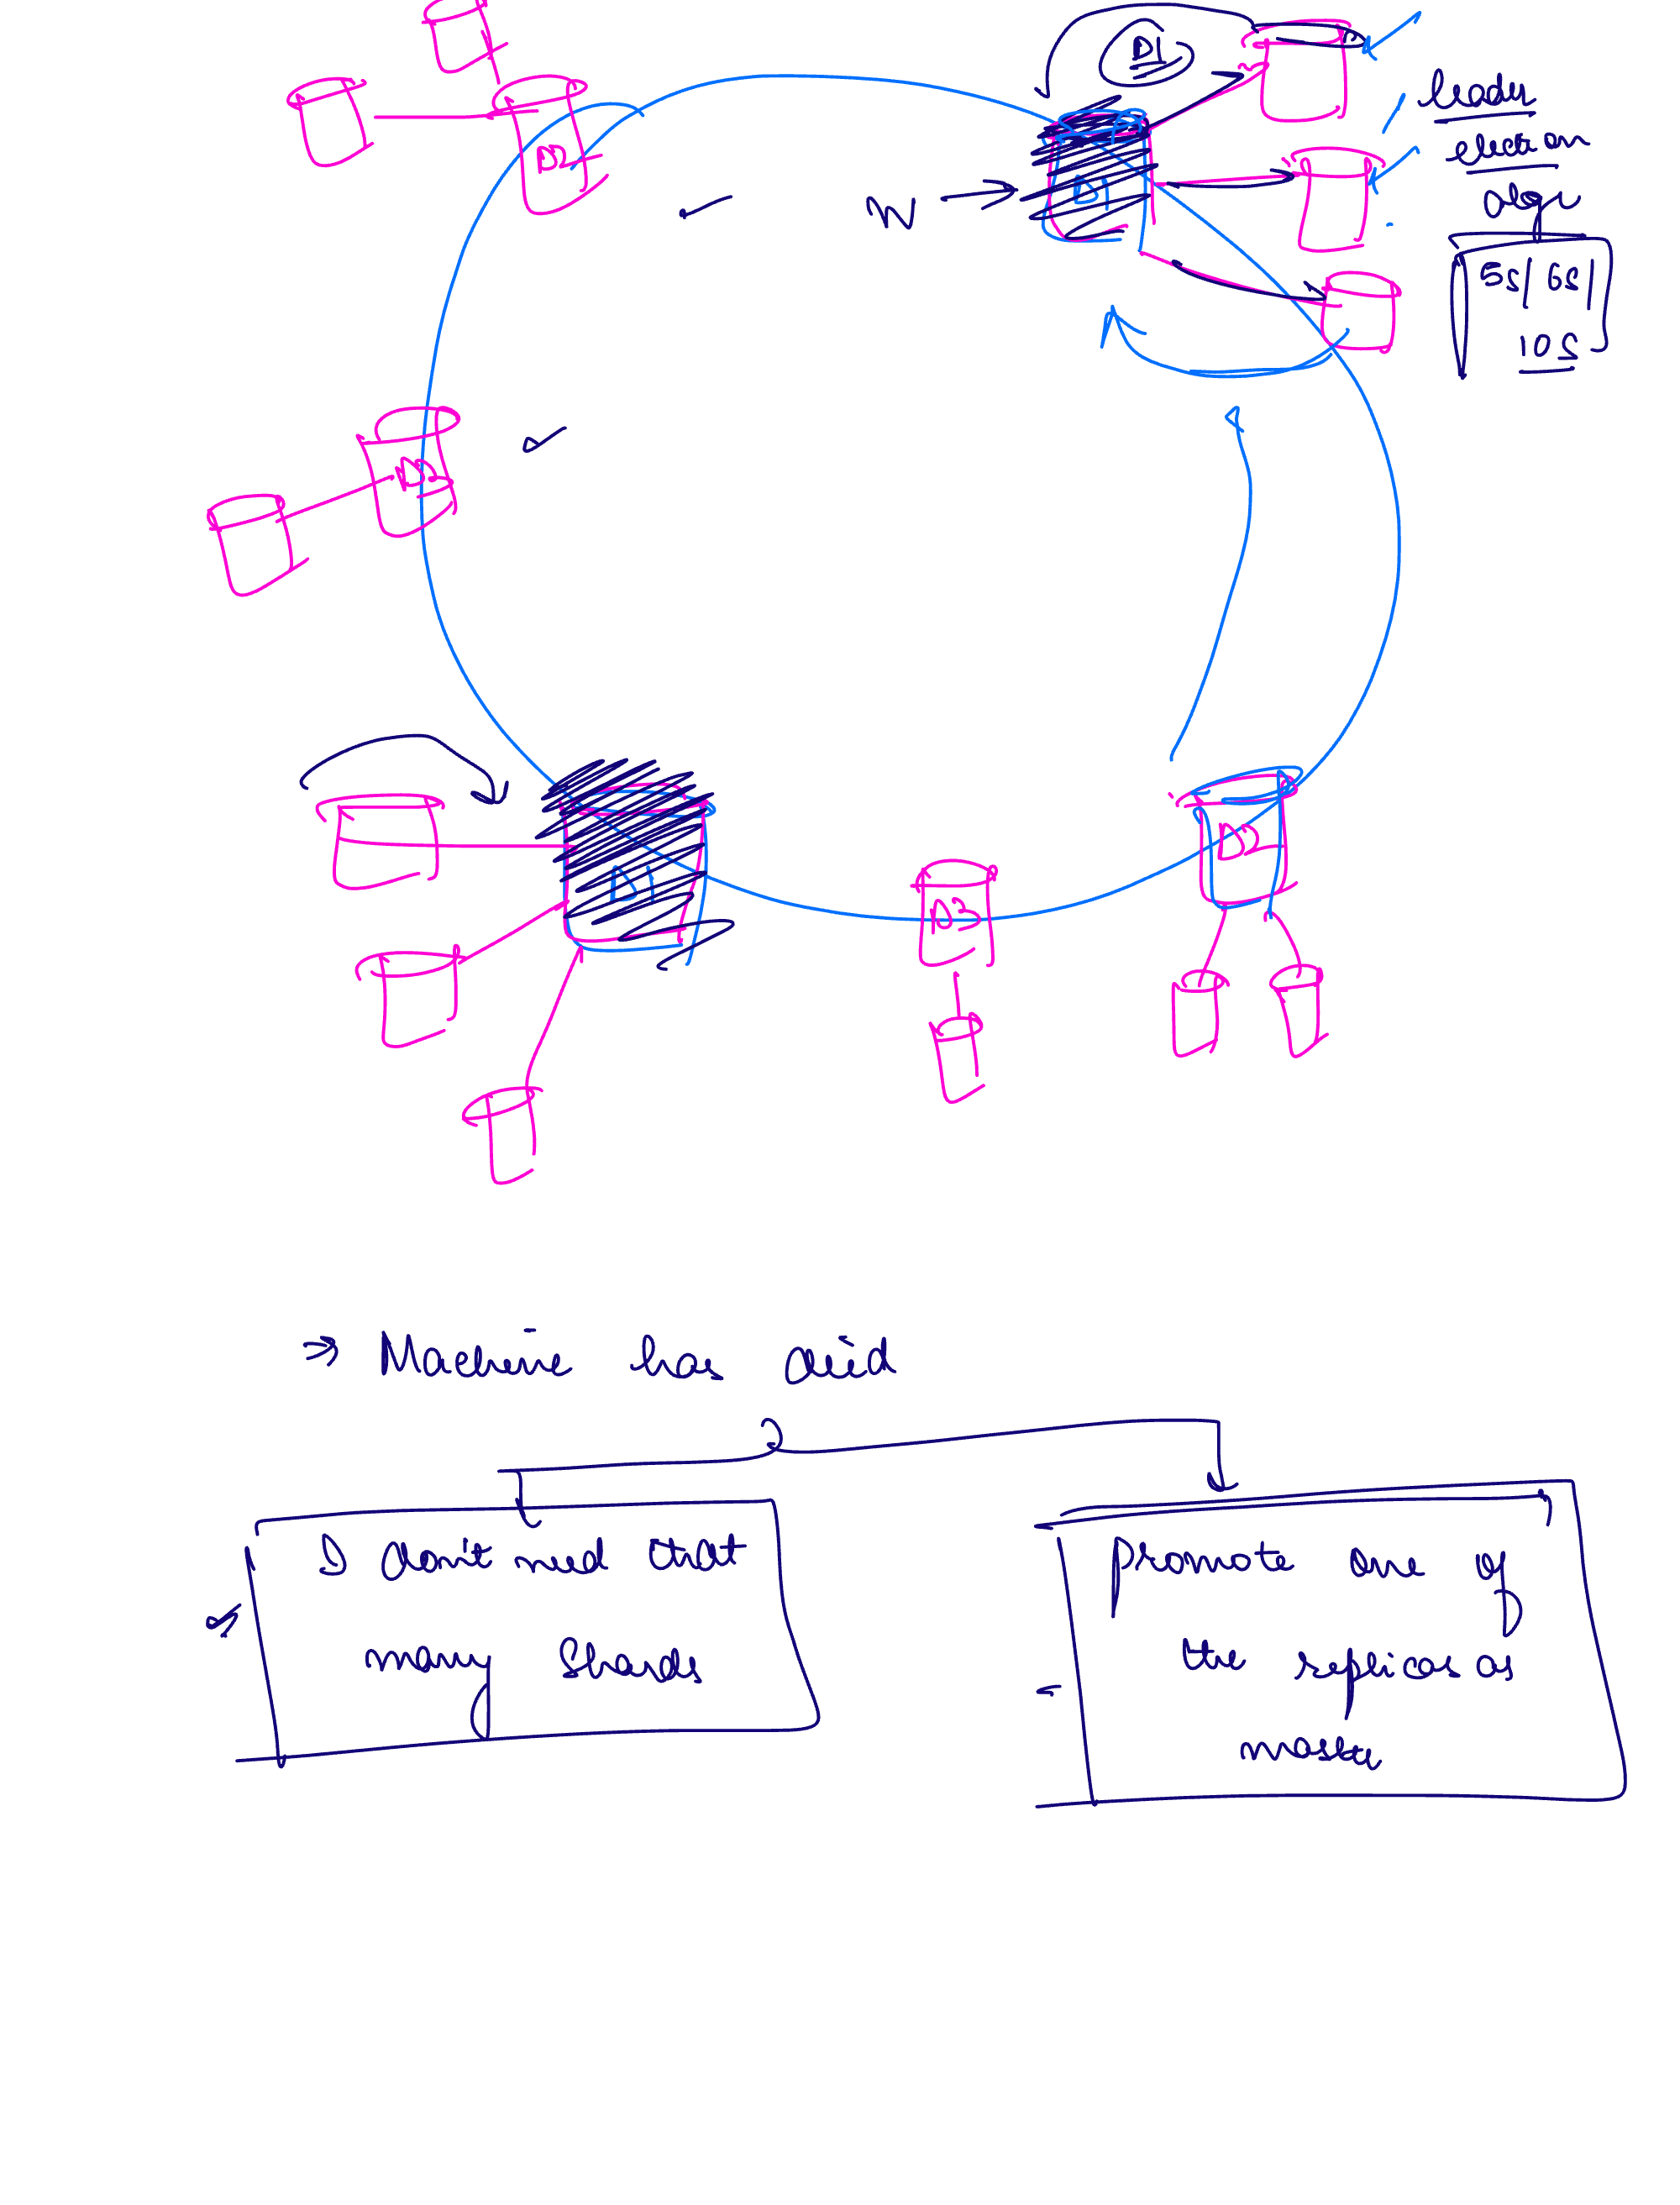 D1
leader
election
algo
5s/ 6s/
10s
D2
W
D1
D3
D1
D2
D3
⇒ Machine has died
I don't need that
many Shards
promote one of
the replicas as
master